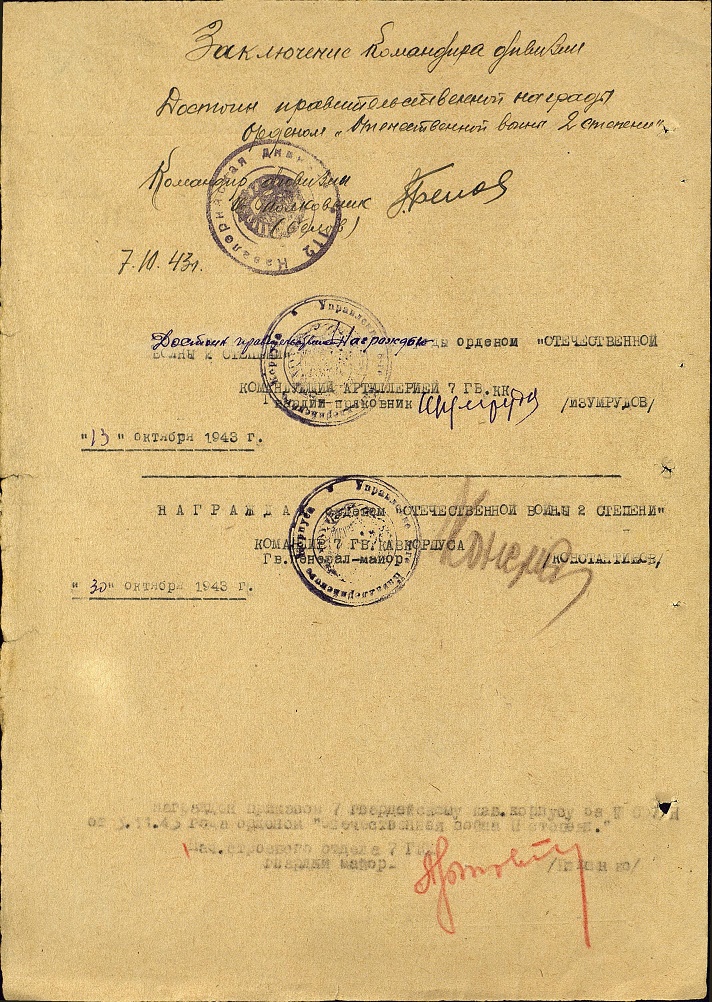 Заключение Командира дивизии
Достоин правительственной награды
Орденом „Отечественной войны 2 степени"
Командир дивизии
полковник
7.10.43г.
112 Кавалерийская
Достоин Награжды орденом "ОТЕЧЕСТВЕННОЙ
ВОЙНЫ 2 СТЕПЕНИ
Управление
КОМАНДУЮЩИЙ АРТИЛЛЕРИЕЙ 7 ГВ.КК
Гвардии-полковник /ИЗУМРУДОВ/
"13" октября 1943 г.
НАГРАЖДАЮ орденом "ОТЕЧЕСТВЕННОЙ ВОЙНЫ 2 СТЕПЕНИ"
Управление Кавалерийского Корпуса
КОМАНДИР 7 ГВ.КАВКОРПУСА
Гв.генерал-майор /КОНСТАНТИНОВ/
"30" октября 1943 г.
награжден приказом 7 гвардейскому кав.корпусу за №
от 3.11.43 года орденом "Отечественная война II степени."
Нач.строевого отдела 7 ГВ.
гвардии майор.